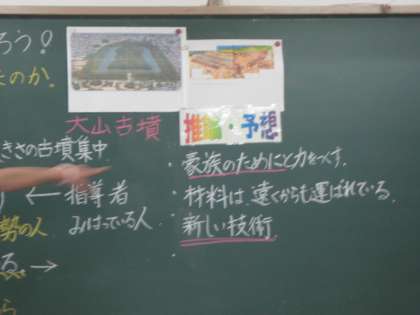 ろう?
たのか。
大山古墳
推論・予想
きさの古墳集中
・家族のためにと力をつくす。
← 指導者
・材料は遠くからも運ばれている。
勢の人
みはっている人
・新しい技術
る →